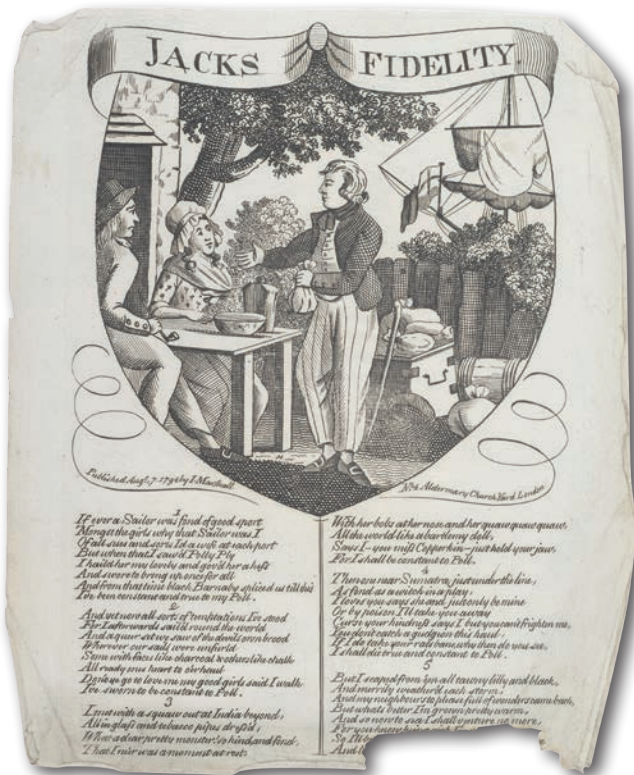 JACKS FIDELITY.
Published Augt. 7. 1794 by I. Marshall
No. 4 Aldermary Church Yard London
1
If ever a Sailor was fond of good sport
'Mongst the girls why that Sailor was I
Of all sizes and sorts I'd a wife at each port
But when that I saw'd Polly Ply
I hail'd her my lovely and gov'd her a kiss
And swore to bring up once for all
And from that time black Barnaby spliced us till this
I've been constant and true to my Poll.
2
And yet now all sorts of temptations I've stood
For I afterwards sail'd round the world
And a queer set we saw of the devils own brood
Wherever our sails were unfurl'd
Some with faces like charcoal & others like chalk
All ready one's heart to o'erhaul
Don't you go to love me my good girls said I walk
I've sworn to be constant to Poll.
3
I met with a squaw out at India beyond,
All in glass and tobacco pipes dress'd,
What a dear pretty monster, so kind and fond,
That I ne'er was a moment at rest.
With her bobs at her nose and her quaw quaw quaw,
All the world like a bartlemy doll,
Says I—you miss Copperskin—just hold your jaw,
For I shall be constant to Poll.
4
Then one near Sumatra, just under the line,
As fond as a witch in a play,
I loves you says she and just only be mine
Or by poison I'll take you away
Curse your kindness says I but you can't frighten me,
You don't catch a gudgeon this haul,
If I do take your ratsbane, why then do you see,
I shall die true and constant to Poll.
5
But I 'scaped from 'em all tawny lilly and black,
And merrily weather'd each storm,
And my neighbours to please full of wonders came back,
But what's better I'm grown pretty warm,
And so now to sea I shall venture no more,
For you know being
So I'll
And